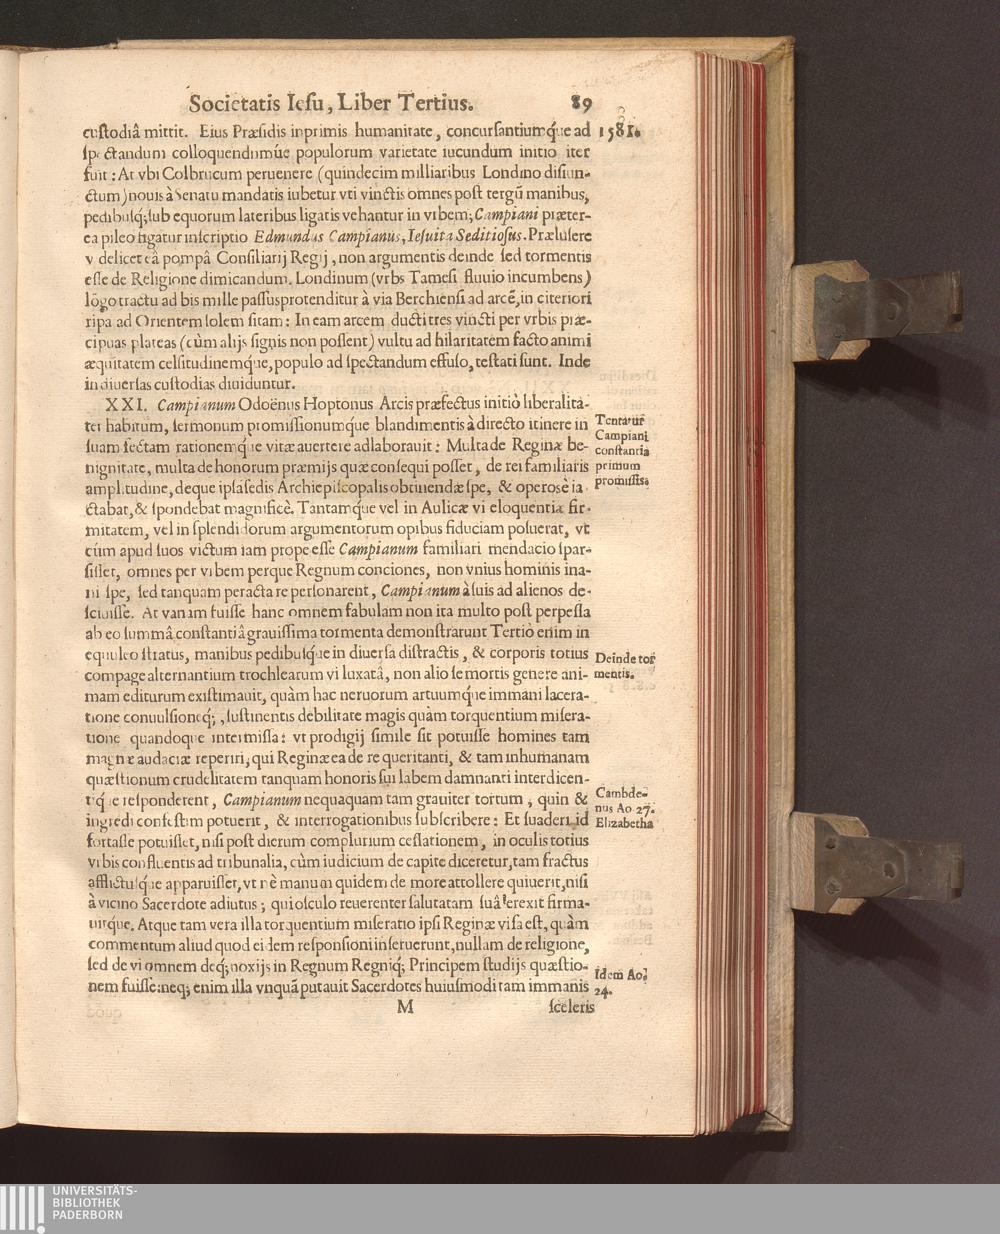 Societatis Iesu, Liber Tertius. 89
custodiâ mittit. Eius Præsidis inprimis humanitate, concursantiumq́ue ad 1581.
spectandum colloquendumúe populorum varietate iucundum initio iter
fuit: At vbi Colbrucum peruenere (quindecim milliaribus Londino disiun-
ctum) nouis à Senatu mandatis iubetur vti vinctis omnes post tergū manibus,
pedibusq́; sub equorum lateribus ligatis vehantur in vrbem; Campiani præter-
ea pileo figatur inscriptio Edmundus Campianus, Iesuita Seditiosus. Prælusere
videlicet eâ pompâ Consiliarij Regij, non argumentis deinde sed tormentis
esse de Religione dimicandum. Londinum (vrbs Tamesi fluuio incumbens)
lōgo tractu ad bis mille passus protenditur à via Berchiensi ad arcē, in citeriori
ripa ad Orientem solem sitam: In eam arcem ducti tres vincti per vrbis præ-
cipuas plateas (cùm alijs signis non possent) vultu ad hilaritatem facto animi
æquitatem celsitudinemq́ue, populo ad spectandum effuso, testati sunt. Inde
in diuersas custodias diuiduntur.
XXI. Campianum Odoënus Hoptonus Arcis præfectus initiò liberalita-
ter habitum, sermonum promissionumq́ue blandimentis à directo itinere in
suam sectam rationemq́ue vitæ auertere adlaborauit: Multa de Reginæ be-
nignitate, multa de honorum præmijs quæ consequi posset, de rei familiaris
amplitudine, deque ipsa sedis Archiepiscopalis obtinendæ spe, & operosè ia-
ctabat, & spondebat magnificè. Tantamq́ue vel in Aulicæ vi eloquentiæ fir-
mitatem, vel in splendidorum argumentorum opibus fiduciam posuerat, vt
cùm apud suos victum iam prope esse Campianum familiari mendacio spar-
sisset, omnes per vrbem perque Regnum conciones, non vnius hominis ina-
ni spe, sed tanquam peracta re personarent, Campianum à suis ad alienos de-
sciuisse. At vanam fuisse hanc omnem fabulam non ita multo post perpessa
ab eo summâ constantiâ grauissima tormenta demonstrarunt Tertiò enim in
equuleo stratus, manibus pedibusq́ue in diuersa distractis, & corporis totius
compage alternantium trochlearum vi luxatâ, non alio se mortis genere ani-
mam editurum existimauit, quàm hac neruorum artuumq́ue immani lacera-
tione conuulsioneq́;, sustinentis debilitate magis quàm torquentium misera-
tione quandoque intermissa: vt prodigij simile sit potuisse homines tam
magnæ audaciæ reperiri, qui Reginæ ea de re queritanti, & tam inhumanam
quæstionum crudelitatem tanquam honoris sui labem damnanti interdicen-
tiq́ue responderent, Campianum nequaquam tam grauiter tortum, quin &
ingredi confestim potuerit, & interrogationibus subscribere: Et suaderi id
fortasse potuisset, nisi post dierum complurium cessationem, in oculis totius
vrbis confluentis ad tribunalia, cùm iudicium de capite diceretur, tam fractus
afflictusq́ue apparuisset, vt nè manum quidem de more attollere quiuerit, nisi
à vicino Sacerdote adiutus; qui osculo reuerenter salutatam suâ erexit firma-
uitq́ue. Atque tam vera illa torquentium miseratio ipsi Reginæ visa est, quàm
commentum aliud quod eidem responsioni inseruerunt, nullam de religione,
sed de vi omnem deq́; noxijs in Regnum Regniq́; Principem studijs quæstio-
nem fuisse: neq́; enim illa vnquā putauit Sacerdotes huiusmodi tam immanis
M sceleris
Tentatur
Campiani
constantia
primum
promissis.
Deinde tor
mentis.
Cambde-
nus Ao 27.
Elizabetha
Idem Ao.
24.
UNIVERSITÄTS-
BIBLIOTHEK
PADERBORN